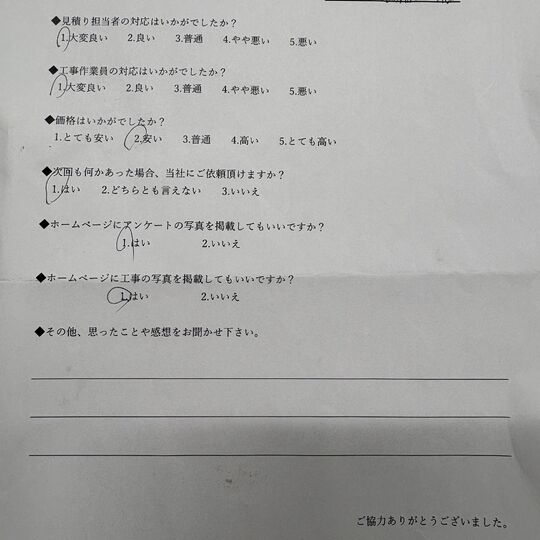 ◆見積り担当者の対応はいかがでしたか?
1.大変良い 2.良い 3.普通 4.やや悪い 5.悪い
◆工事作業員の対応はいかがでしたか?
1.大変良い 2.良い 3.普通 4.やや悪い 5.悪い
◆価格はいかがでしたか?
1.とても安い 2.安い 3.普通 4.高い 5.とても高い
◆次回も何かあった場合、当社にご依頼頂けますか?
1.はい 2.どちらとも言えない 3.いいえ
◆ホームページにアンケートの写真を掲載してもいいですか?
1.はい 2.いいえ
◆ホームページに工事の写真を掲載してもいいですか?
1.はい 2.いいえ
◆その他、思ったことや感想をお聞かせ下さい。
ご協力ありがとうございました。